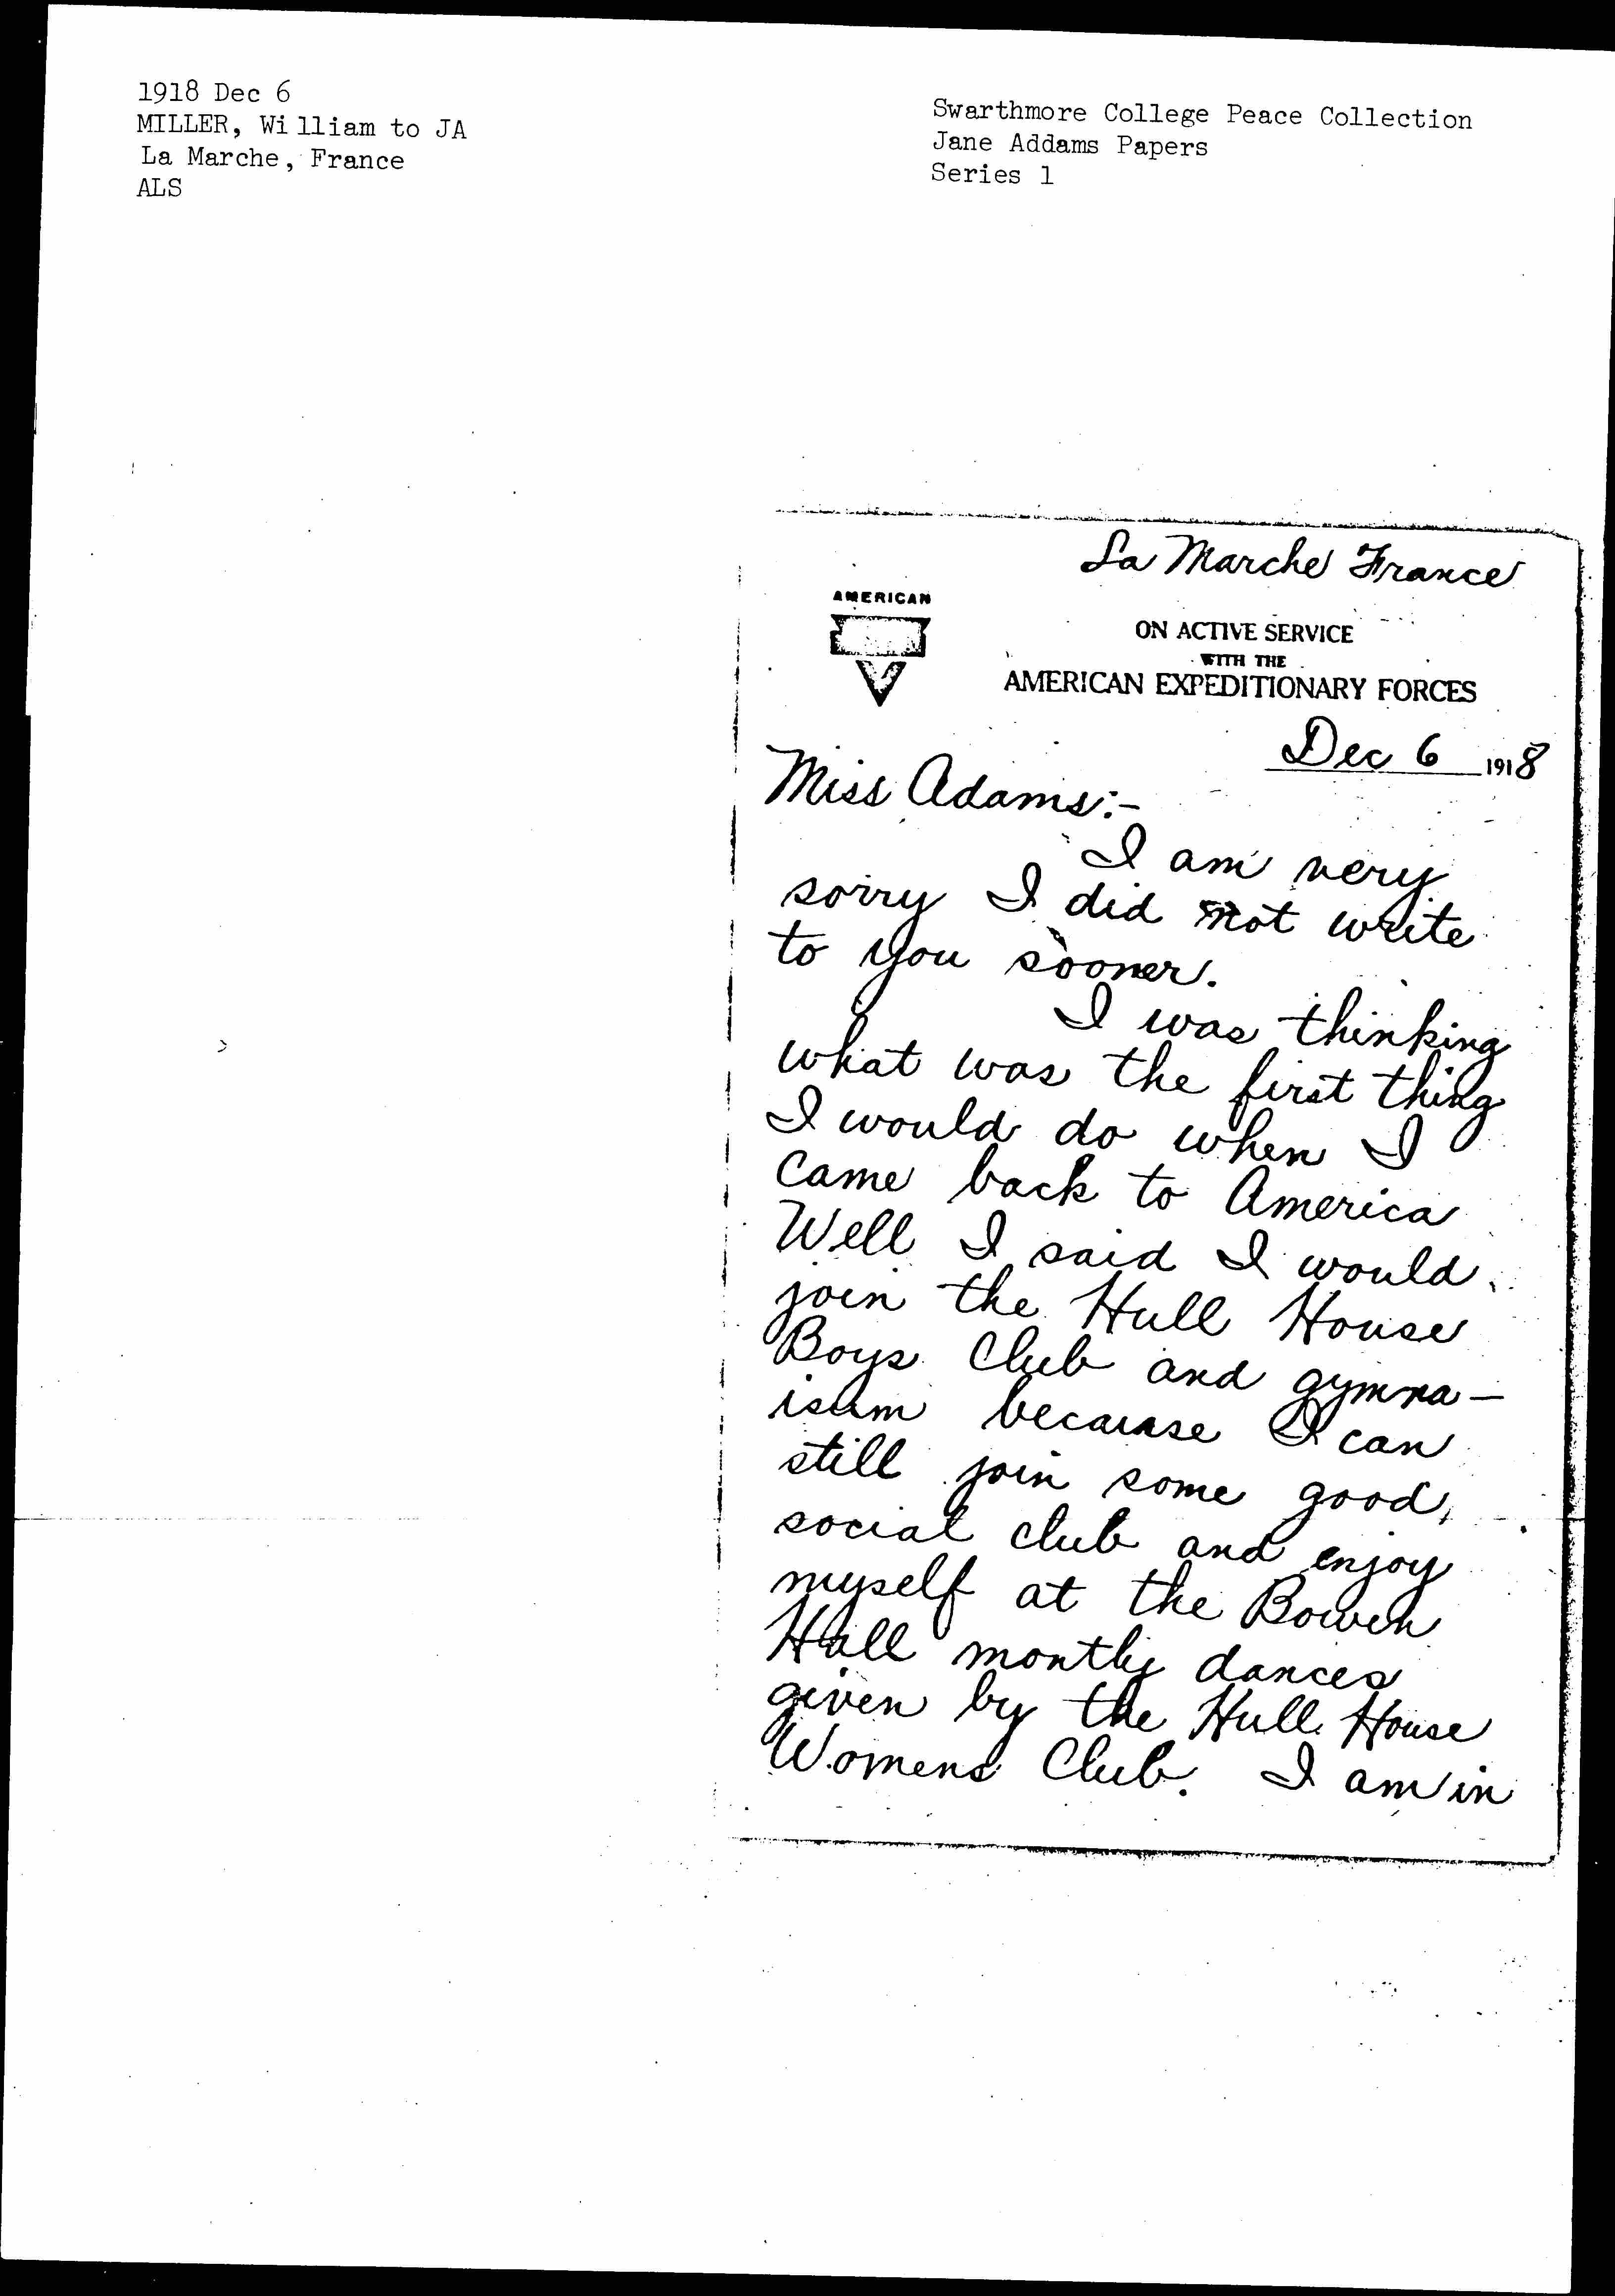 1918 Dec 6
MILLER, William to JA
La Marche, France
ALS
Swarthmore College Peace Collection
Jane Addams Papers
Series 1
La Marche France
AMERICAN
ON ACTIVE SERVICE
WITH THE
AMERICAN EXPEDITIONARY FORCES
Dec 6 1918
Miss Adams:-
I am very
sorry I did not write
to you sooner.
I was thinking
what was the first thing
I would do when I
came back to America
Well I said I would
join the Hull House
Boys Club and gymna-
isum because I can
still join some good,
social club and enjoy
myself at the Bowen
Hall montly dances
given by the Hull House
Womens Club. I am in